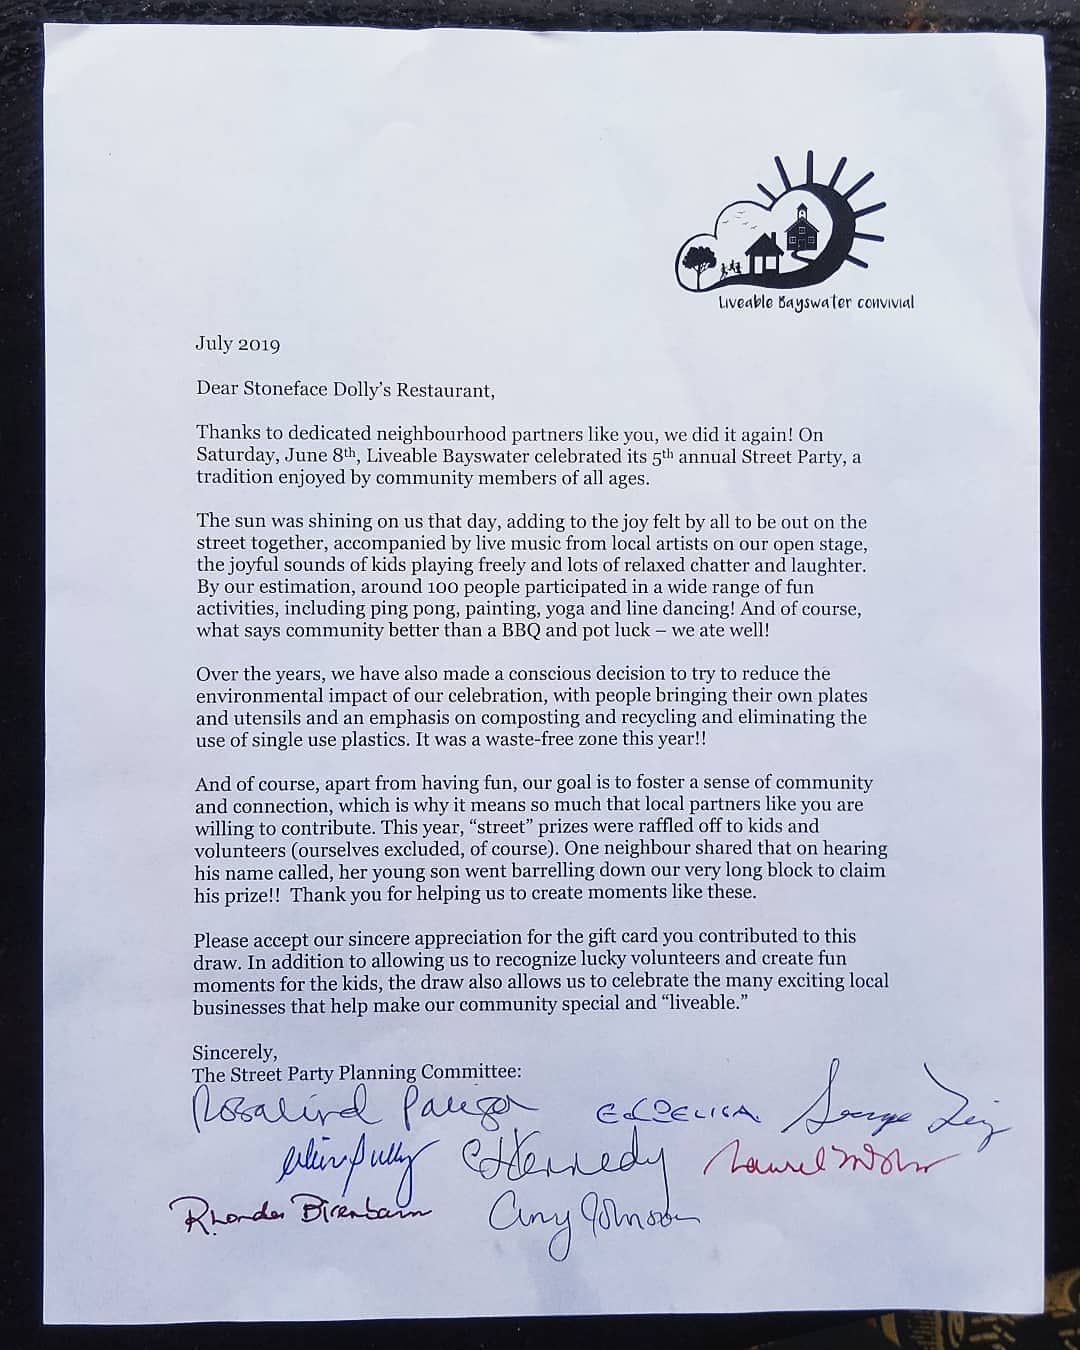 Liveable Bayswater convivial
July 2019
Dear Stoneface Dolly's Restaurant,
Thanks to dedicated neighbourhood partners like you, we did it again! On
Saturday, June 8th, Liveable Bayswater celebrated its 5th annual Street Party, a
tradition enjoyed by community members of all ages.
The sun was shining on us that day, adding to the joy felt by all to be out on the
street together, accompanied by live music from local artists on our open stage,
the joyful sounds of kids playing freely and lots of relaxed chatter and laughter.
By our estimation, around 100 people participated in a wide range of fun
activities, including ping pong, painting, yoga and line dancing! And of course,
what says community better than a BBQ and pot luck – we ate well!
Over the years, we have also made a conscious decision to try to reduce the
environmental impact of our celebration, with people bringing their own plates
and utensils and an emphasis on composting and recycling and eliminating the
use of single use plastics. It was a waste-free zone this year!!
And of course, apart from having fun, our goal is to foster a sense of community
and connection, which is why it means so much that local partners like you are
willing to contribute. This year, “street” prizes were raffled off to kids and
volunteers (ourselves excluded, of course). One neighbour shared that on hearing
his name called, her young son went barrelling down our very long block to claim
his prize!!  Thank you for helping us to create moments like these.
Please accept our sincere appreciation for the gift card you contributed to this
draw. In addition to allowing us to recognize lucky volunteers and create fun
moments for the kids, the draw also allows us to celebrate the many exciting local
businesses that help make our community special and “liveable.”
Sincerely,
The Street Party Planning Committee:
Rosalind
Kennedy
Rhonda Birenbaum Amy Johnson